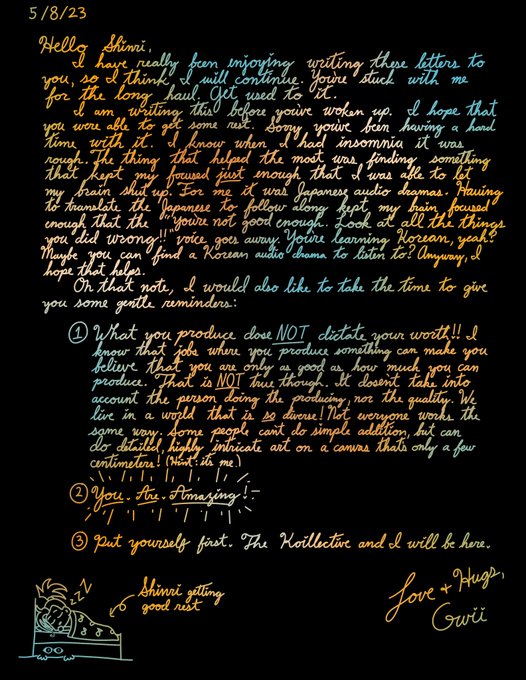 5/8/23
Hello Shinri,
I have really been enjoying writing these letters to
you, so I think I will continue. You're stuck with me
for the long haul. Get used to it.
I am writing this before you've woken up. I hope that
you were able to get some rest. Sorry you've been having a hard
time with it. I know when I had insomnia it was
rough. The thing that helped the most was finding something
that kept my focused just enough that I was able to let
my brain shut up. For me it was Japanese audio dramas. Having
to translate the Japanese to follow along kept my brain focused
enough that the "you're not good enough. Look at all the things
you did wrong!!" voice goes away. You're learning Korean, yeah?
Maybe you can find a Korean audio drama to listen to? Anyway, I
hope that helps.
On that note, I would also like to take the time to give
you some gentle reminders:
① What you produce dose NOT dictate your worth!! I
know that jobs where you produce something can make you
believe that you are only as good as how much you can
produce. That is NOT true though. It dosen't take into
account the person doing the producing, nor the quality. We
live in a world that is so diverse! Not everyone works the
same way. Some people can't do simple addition, but can
do detailed, highly intricate art on a canvas thats only a few
centimeters! (Hint: it's me.)
② You. Are. Amazing!
③ Put yourself first. The Koillective and I will be here.
Love + Hugs,
Gwii
zzZ
Shinri getting
good rest